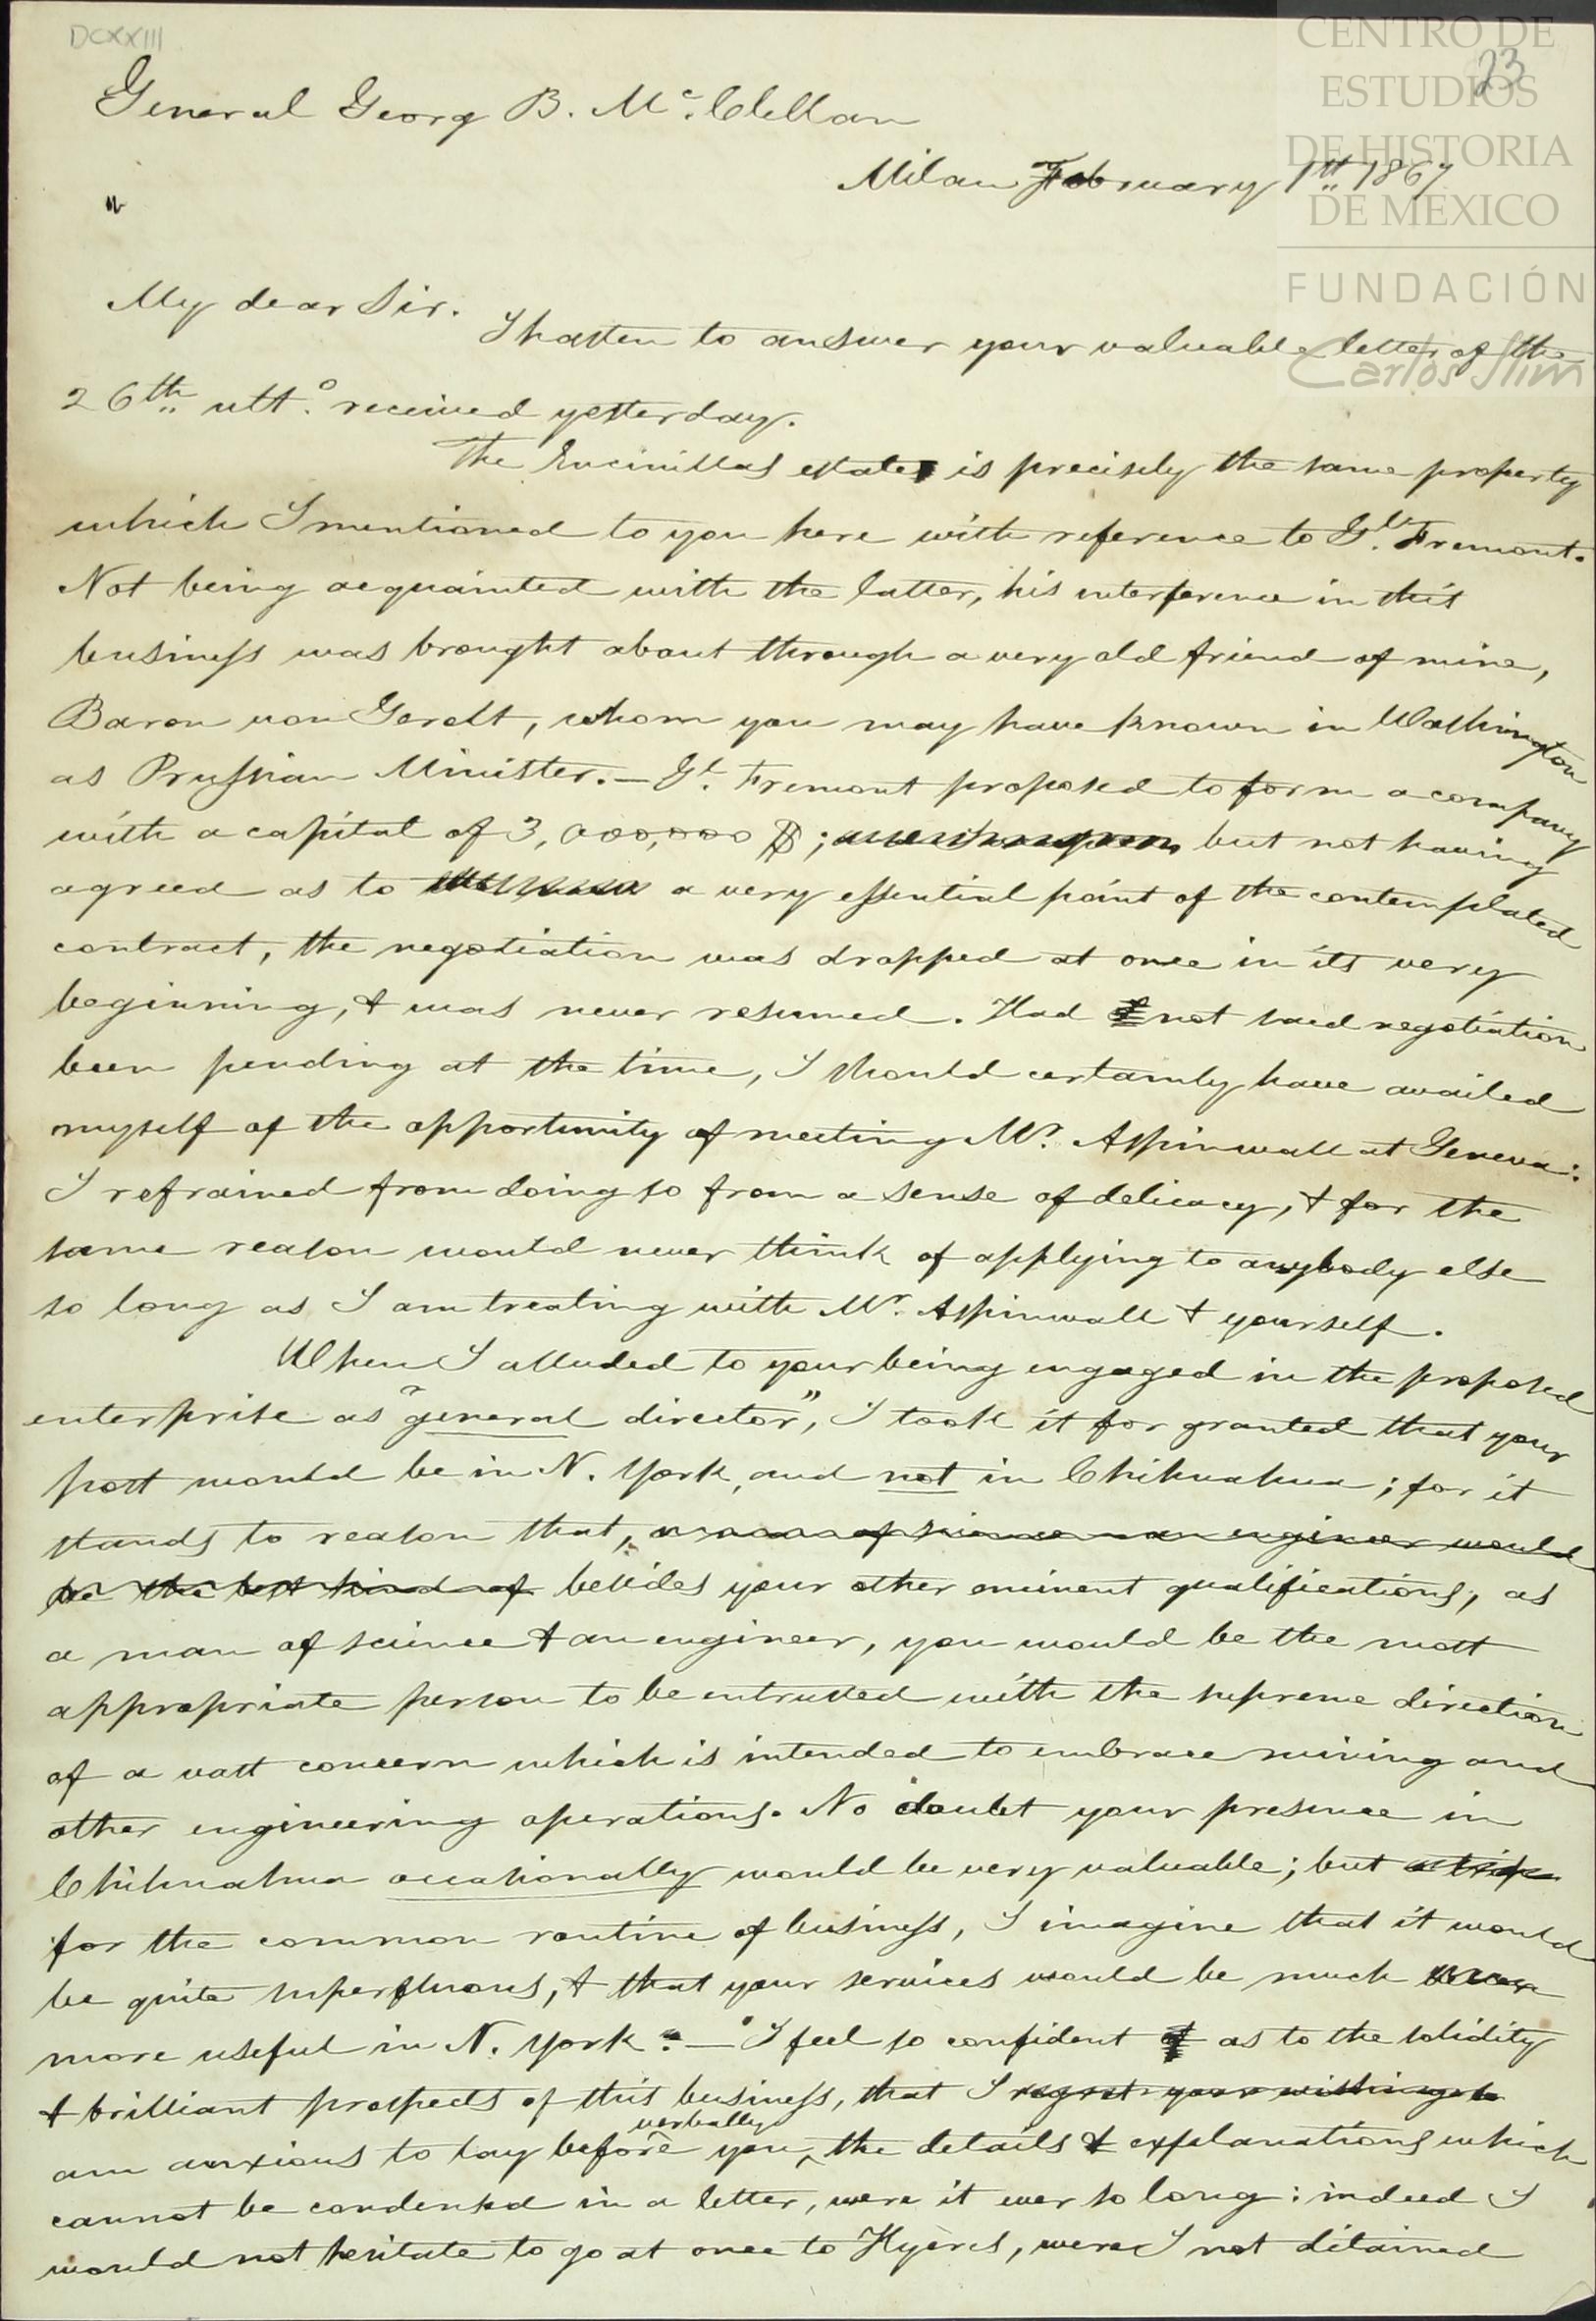 DCXXIII
23
CENTRO DE
ESTUDIOS
DE HISTORIA
DE MÉXICO
FUNDACIÓN
Carlos Slim
General Georg B. Mc. Clellan
Milan February 1tt 1867
My dear Sir.
I hasten to answer your valuable letter of the
26th ult.o received yesterday.
The Encinillas estate is precisely the same property
which I mentioned to you here with reference to Gl. Fremont.
Not being acquainted with the latter, his interference in this
business was brought about through a very old friend of mine,
Baron von Gerolt, whom you may have known in Washington
as Prussian Minister. — Gl. Fremont proposed to form a company
with a capital of 3,000,000 $; but not having
agreed as to a very essential point of the contemplated
contract, the negotiation was dropped at once in its very
beginning, & was never resumed. Had not said negotiation
been pending at the time, I should certainly have availed
myself of the opportunity of meeting Mr. Aspinwall at Geneva:
I refrained from doing so from a sense of delicacy, & for the
same reason would never think of applying to anybody else
so long as I am treating with Mr. Aspinwall & yourself.
When I alluded to your being engaged in the proposed
enterprise as "general director", I took it for granted that your
post would be in N. York, and not in Chihuahua; for it
stands to reason that, a man of science an engineer would
be the best kind of besides your other eminent qualifications, as
a man of science & an engineer, you would be the most
appropriate person to be entrusted with the supreme direction
of a vast concern which is intended to embrace mining and
other engineering operations. No doubt your presence in
Chihuahua occasionally would be very valuable; but a trip
for the common routine of business, I imagine that it would
be quite superfluous, & that your services would be much
more useful in N. York. — I feel so confident as to the solidity
& brilliant prospects of this business, that I regret your wishing to
verbally
am anxious to lay before you the details & explanations which
cannot be condensed in a letter, were it ever so long: indeed I
would not hesitate to go at once to Hyères, were I not detained